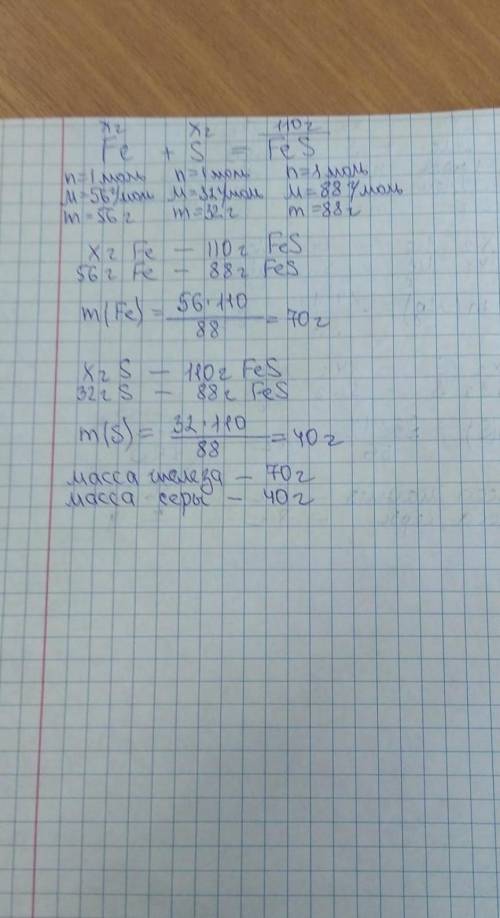 хг хг 110г
Fe + S = FeS
n=1моль n=1моль n=1моль
M=56г/моль M=32г/моль M=88г/моль
m=56г m=32г m=88г
хг Fe — 110г FeS
56г Fe — 88г FeS
m(Fe) = 56·110 / 88 = 70г
хг S — 110г FeS
32г S — 88г FeS
m(S) = 32·110 / 88 = 40г
масса железа — 70г
масса серы — 40г